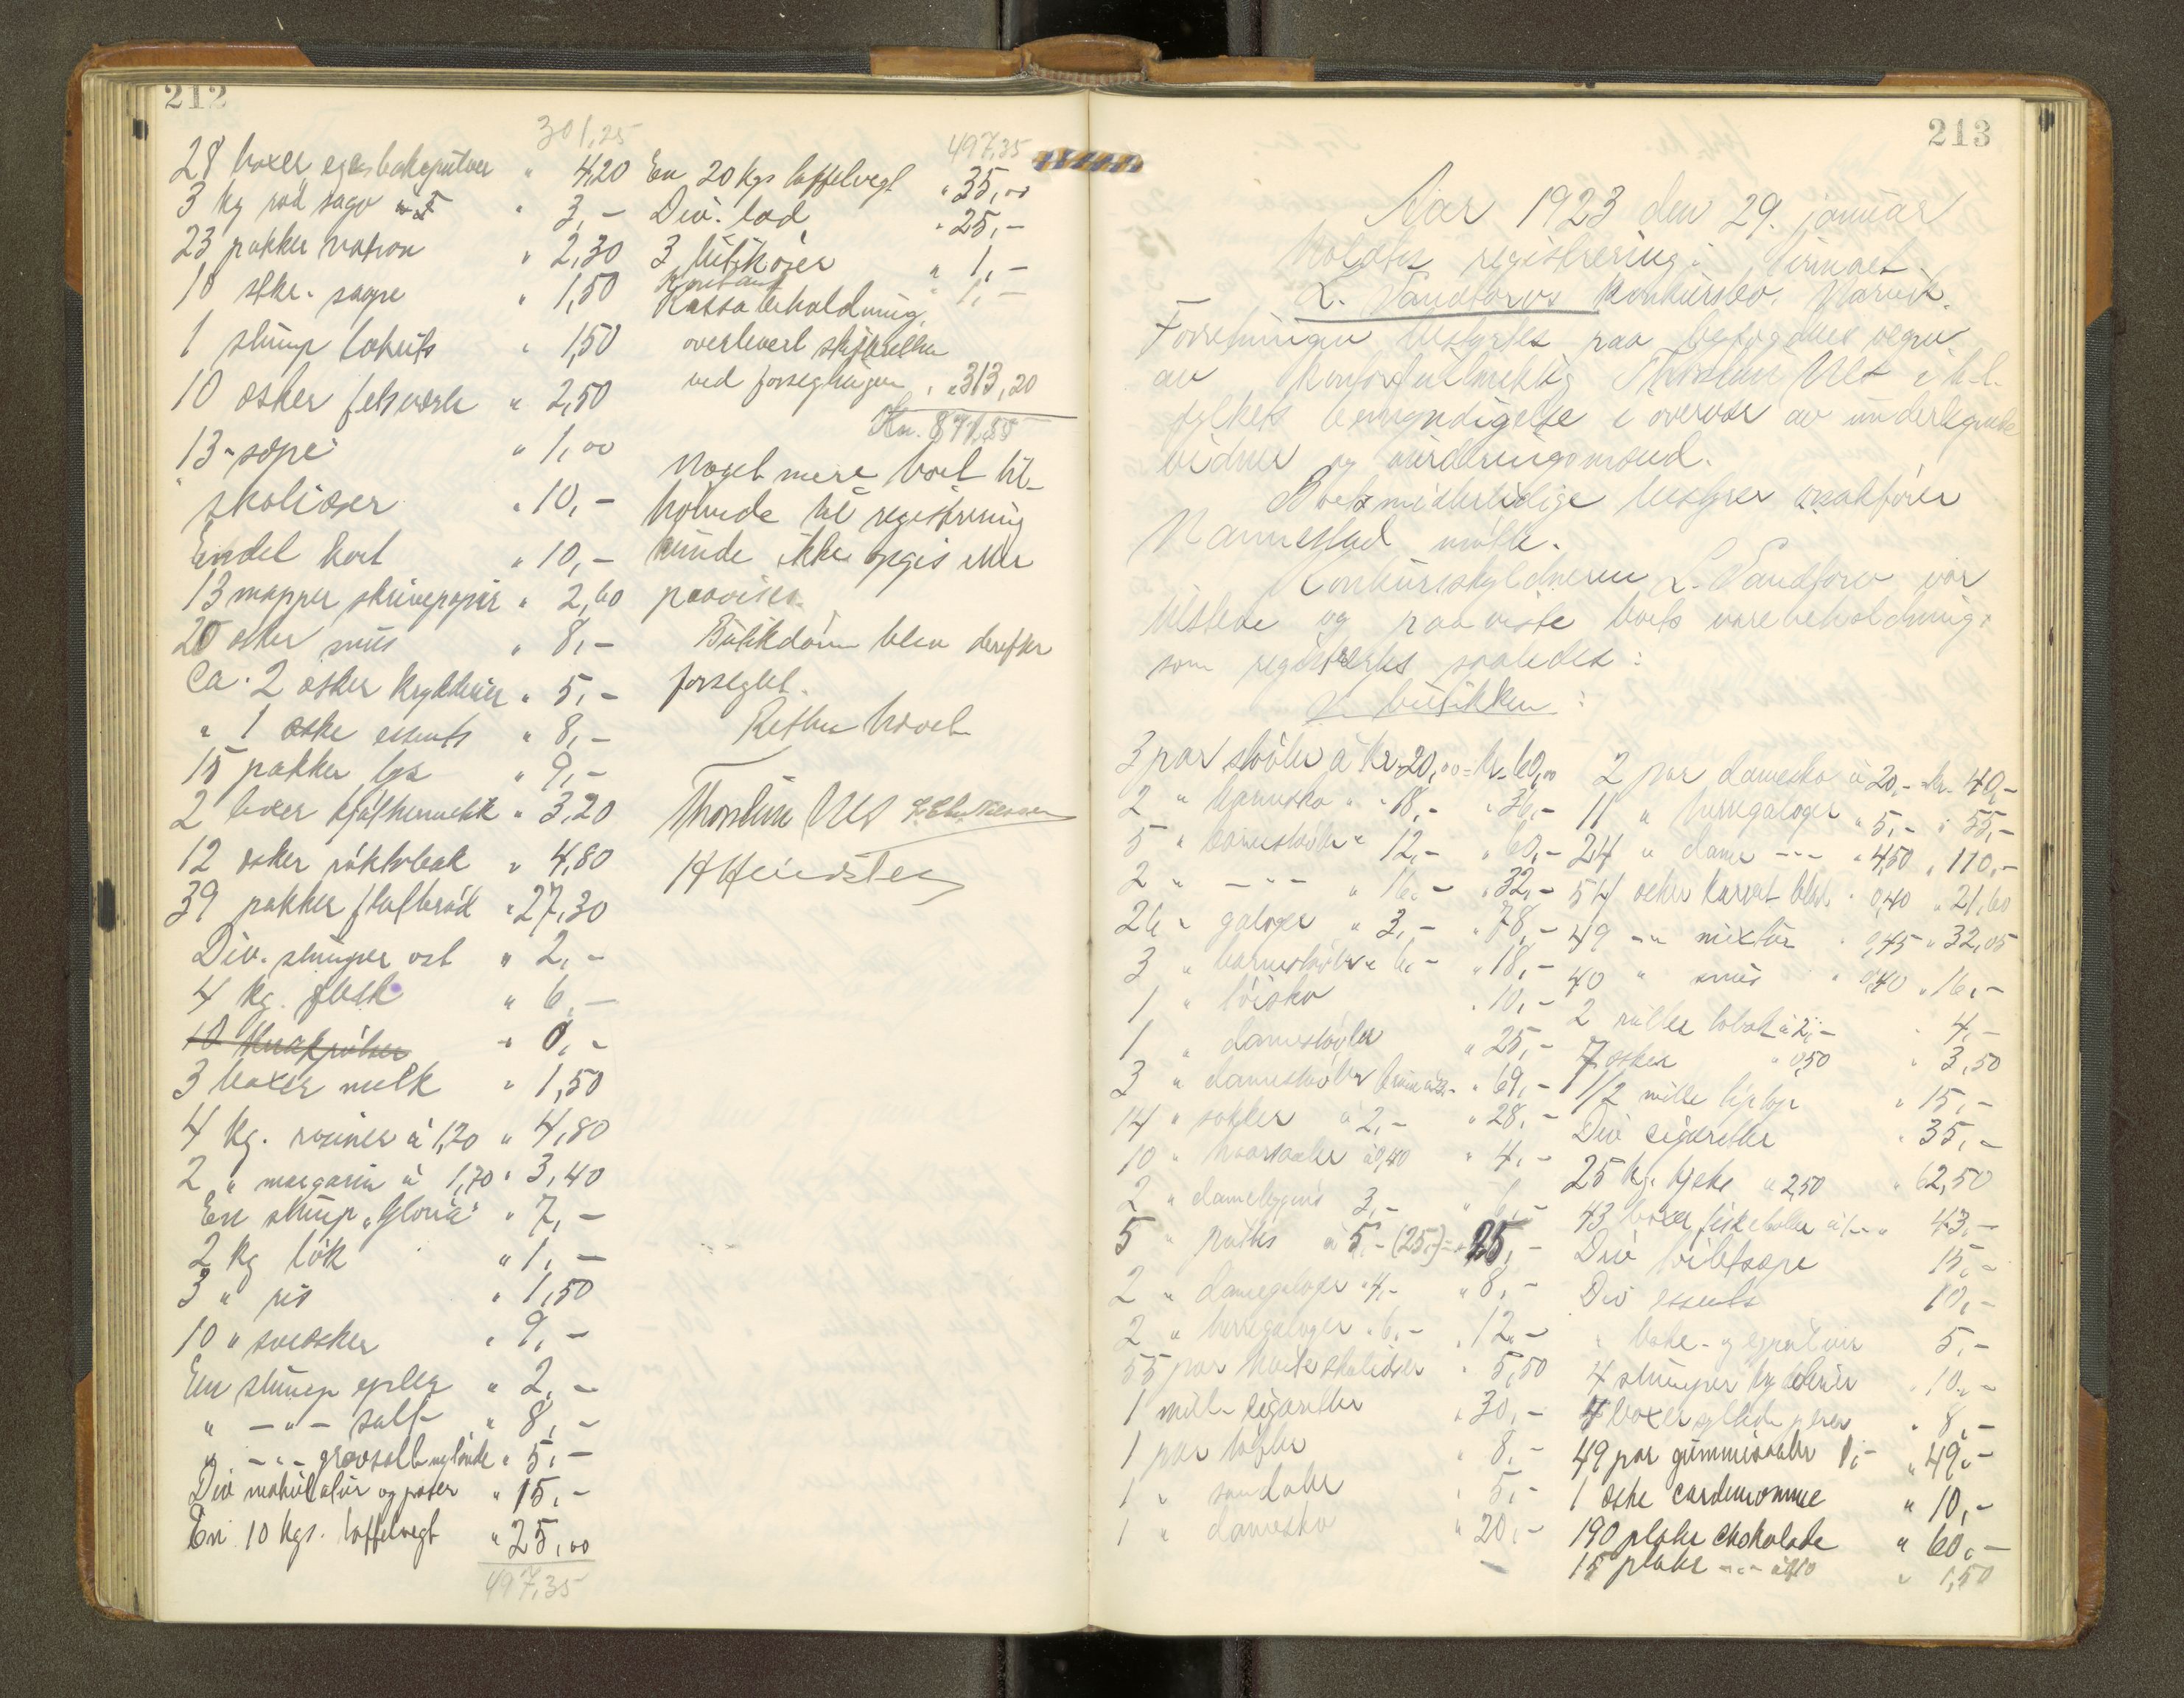 212
301,25
28 boxer eges bakepulver " 4,20
3 kg rød sago " 3,-
23 pakker natron " 2,30
18 stkr. sæpe " 1,50
1 stump lakrits " 1,50
10 æsker fetsværte " 2,50
13 - sæpe " 1,00
skolisser " 10,-
Endel kort " 10,-
13 mapper skrivepapir " 2,60
20 æsker snus " 8,-
Ca. 2 æsker krydderier " 5,-
" 1 æske essents " 8,-
15 pakker lys " 9,-
2 boxer kjøthermetik " 3,20
12 æsker røktobak " 4,80
39 pakker flatbrød " 27,30
Div. stumper ost " 2,-
4 kg. flesk " 6,-
10 " 0,-
3 boxer melk " 1,50
4 kg. rosiner à 1,20 " 4,80
2 " margarin à 1,70 " 3,40
En stump "Gloria" " 7,-
2 kg løk " 1,-
3 " ris " 1,50
10 " svedsker " 9,-
En stump epler " 2,-
" -"- salt " 8,-
" -"- grovsalt m/tønde " 5,-
Div makulatur og poser " 15,-
En 10 kgs. bøffelvegt " 25,00
497,35
497,35
En 20 kgs bøffelvegt " 35,00
Div. lod " 25,-
3 " 1,-
Kontant " 1,-
Kassabeholdning
overlevert skifteretten
ved forseglingen " 313,20
Kr. 871,55
Noget mere boet til-
hørende til registrering
kunde ikke opgis eller
paavises.
Butikdøren blev derefter
forseglet.
Retten hævet
Thorstein Ulst
213
Aar 1923 den 29. januar
holdtes registrering i firmaet
L. Sandtorvs konkursbo, Narvik.
Forretningen bestyrtes paa byfogdens vegne
av kontorfuldmektig Thorstein Ulst i h.t.
fylkets bemyndigelse i overvær av undertegnede
vidner og vurderingsmænd.
Boets midlertidige bestyrer o.r.sakfører
Nannestad møtte.
Konkursskyldneren L. Sandtorv var
tilstede og paaviste boets varebeholdning
som registrertes saaledes:
I butikken:
3 par støvler à kr. 20,00 = kr. 60,00
2 " børnesko " 18,- " 36,-
5 " børnestøvler " 12,- " 60,-
2 " -"- " 16,- " 32,-
26 " galoger " 3,- " 78,-
3 " barnestøvler " 6,- " 18,-
1 " tøisko " 10,-
1 " damestøvler " 25,-
3 " damestøvler brune à 23,- " 69,-
14 " sokker à 2,- " 28,-
10 " haarsaaler à 0,40 " 4,-
2 " 3,- " 6,-
5 " à 5,- (25,-) = 25,-
2 " damegaloger " 4,- " 8,-
2 " herregaloger " 6,- " 12,-
55 par hvite skolisser " 5,50
1 mille cigaretter " 30,-
1 par tøfler " 8,-
1 " sandaler " 5,-
1 " damesko " 20,-
2 par damesko à 20,- kr. 40,-
11 " herregaloger " 5,- " 55,-
24 " dame -"- " 4,50 " 110,-
54 æsker karvet blad " 0,40 " 21,60
49 -"- mixtur " 0,45 " 32,05
40 " snus " 0,40 " 16,-
2 ruller tobak à 2,- " 4,-
7 æsker " 0,50 " 3,50
1/2 mille tiptop " 15,-
Div cigaretter " 35,-
25 kg. kjeks " 2,50 " 62,50
43 boxer fiskeboller à 1,- " 43,-
Div toiletsæpe 15,-
Div essents 10,-
" bake- og eggpulver 5,-
4 stumper krydderier " 10,-
4 boxer syltede pærer " 8,-
49 par gummisaaler 1,- " 49,-
1 æske cardemomme " 10,-
190 plater chokolade " 60,-
15 plater -"- à 0,10 " 1,50